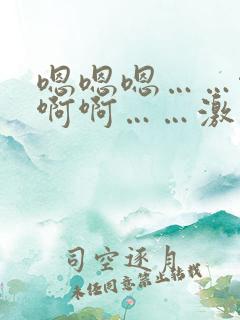 嗯嗯嗯……
啊啊……激
司空逐月
未经同意禁止转载